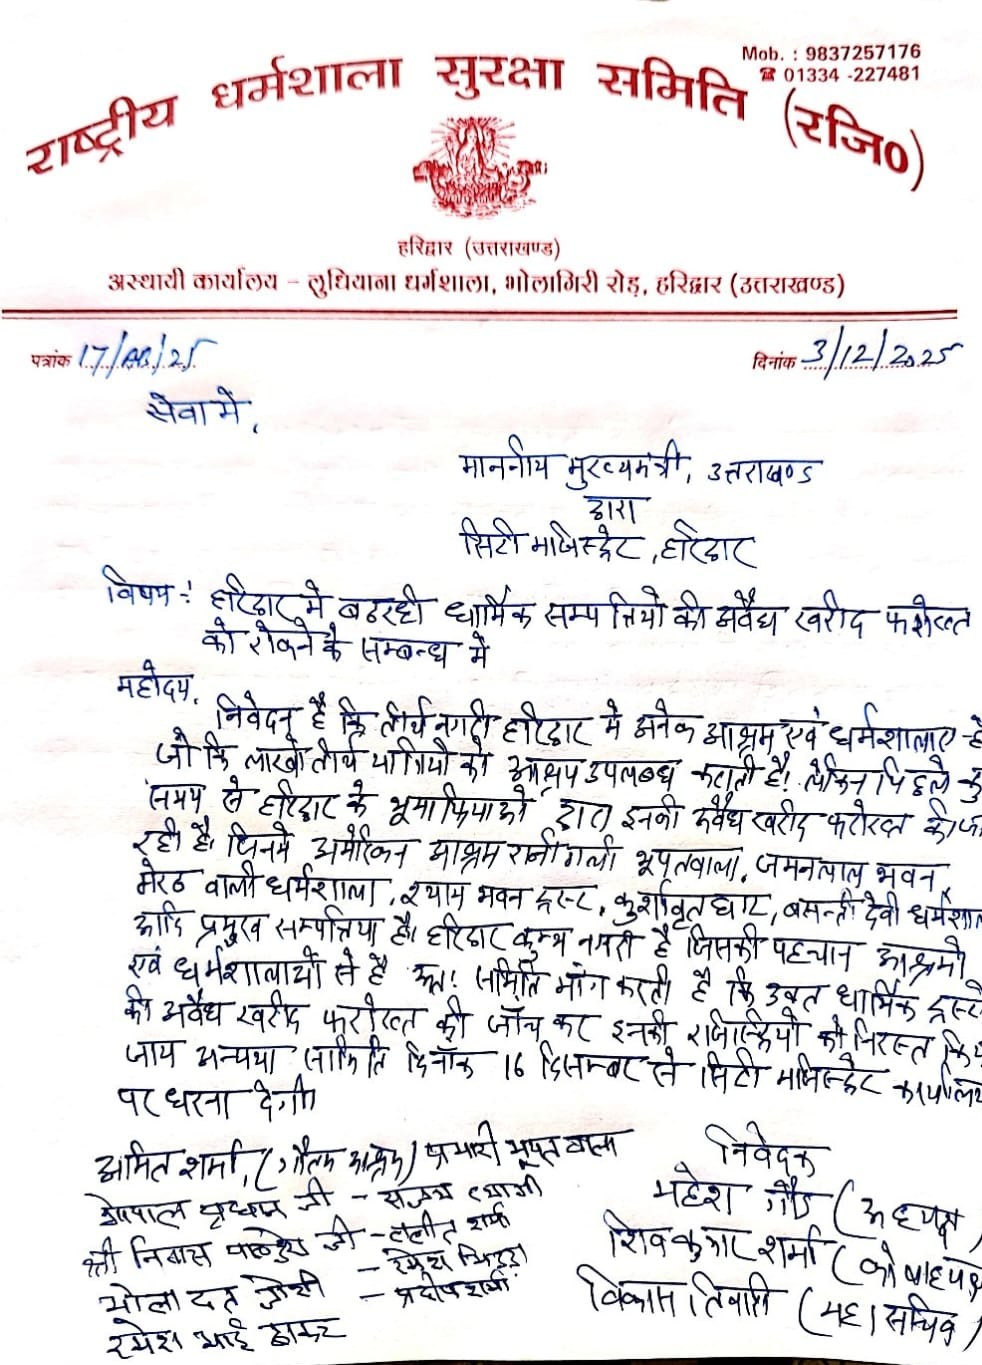 Mob. : 9837257176
☎ 01334 -227481
राष्ट्रीय धर्मशाला सुरक्षा समिति (रजि०)
हरिद्वार (उत्तराखण्ड)
अस्थायी कार्यालय – लुधियाना धर्मशाला, भोलागिरी रोड़, हरिद्वार (उत्तराखण्ड)
पत्रांक 17/AB/25 दिनांक 3/12/2025
सेवा में,
माननीय मुख्यमंत्री, उत्तराखण्ड
द्वारा
सिटी मजिस्ट्रेट, हरिद्वार
विषय :- हरिद्वार मे बढ रही धार्मिक सम्पत्तियो की अवैध खरीद फरोख्त
को रोकने के सम्बन्ध में
महोदय,
निवेदन है कि तीर्थ नगरी हरिद्वार मे अनेक आश्रम एवं धर्मशालाए है
जो कि लाखो तीर्थ यात्रियो को आश्रय उपलब्ध कराती है। लेकिन पिछले कु
समय से हरिद्वार के भूमाफियाओ द्वारा इनकी अवैध खरीद फरोख्त की जा
रही है। जिनमे अमेरिकन आश्रम रानी गली भूपतवाला, जमनालाल भवन,
मेरठ वाली धर्मशाला, श्याम भवन ट्रस्ट, कुशावृत घाट, बसन्ती देवी धर्मशाल
आदि प्रमुख सम्पत्तिया है। हरिद्वार कुम्भ नगरी है जिसकी पहचान आश्रमो
एवं धर्मशालाओं से है अतः समिति मांग करती है कि उक्त धार्मिक ट्रस्टो
की अवैध खरीद फरोख्त की जाँच कर इनकी रजिस्ट्रियो को निरस्त किय
जाय अन्यथा समिति दिनाँक 16 दिसम्बर से सिटी मजिस्ट्रेट कार्यालय
पर धरना देगी।
अमित शर्मा, (गौतम आश्रम) प्रभारी भूपतवाला
गोपाल प्रधान जी –
श्री निवास पाण्डेय जी – ललित शर्मा
भोला दत्त जोशी – प्रदीप शर्मा
रमेश भाई ठाकर
निवेदक
महेश गौड़ (अध्यक्ष)
शिव कुमार शर्मा (कोषाध्यक्ष
विकास तिवारी (महासचिव)